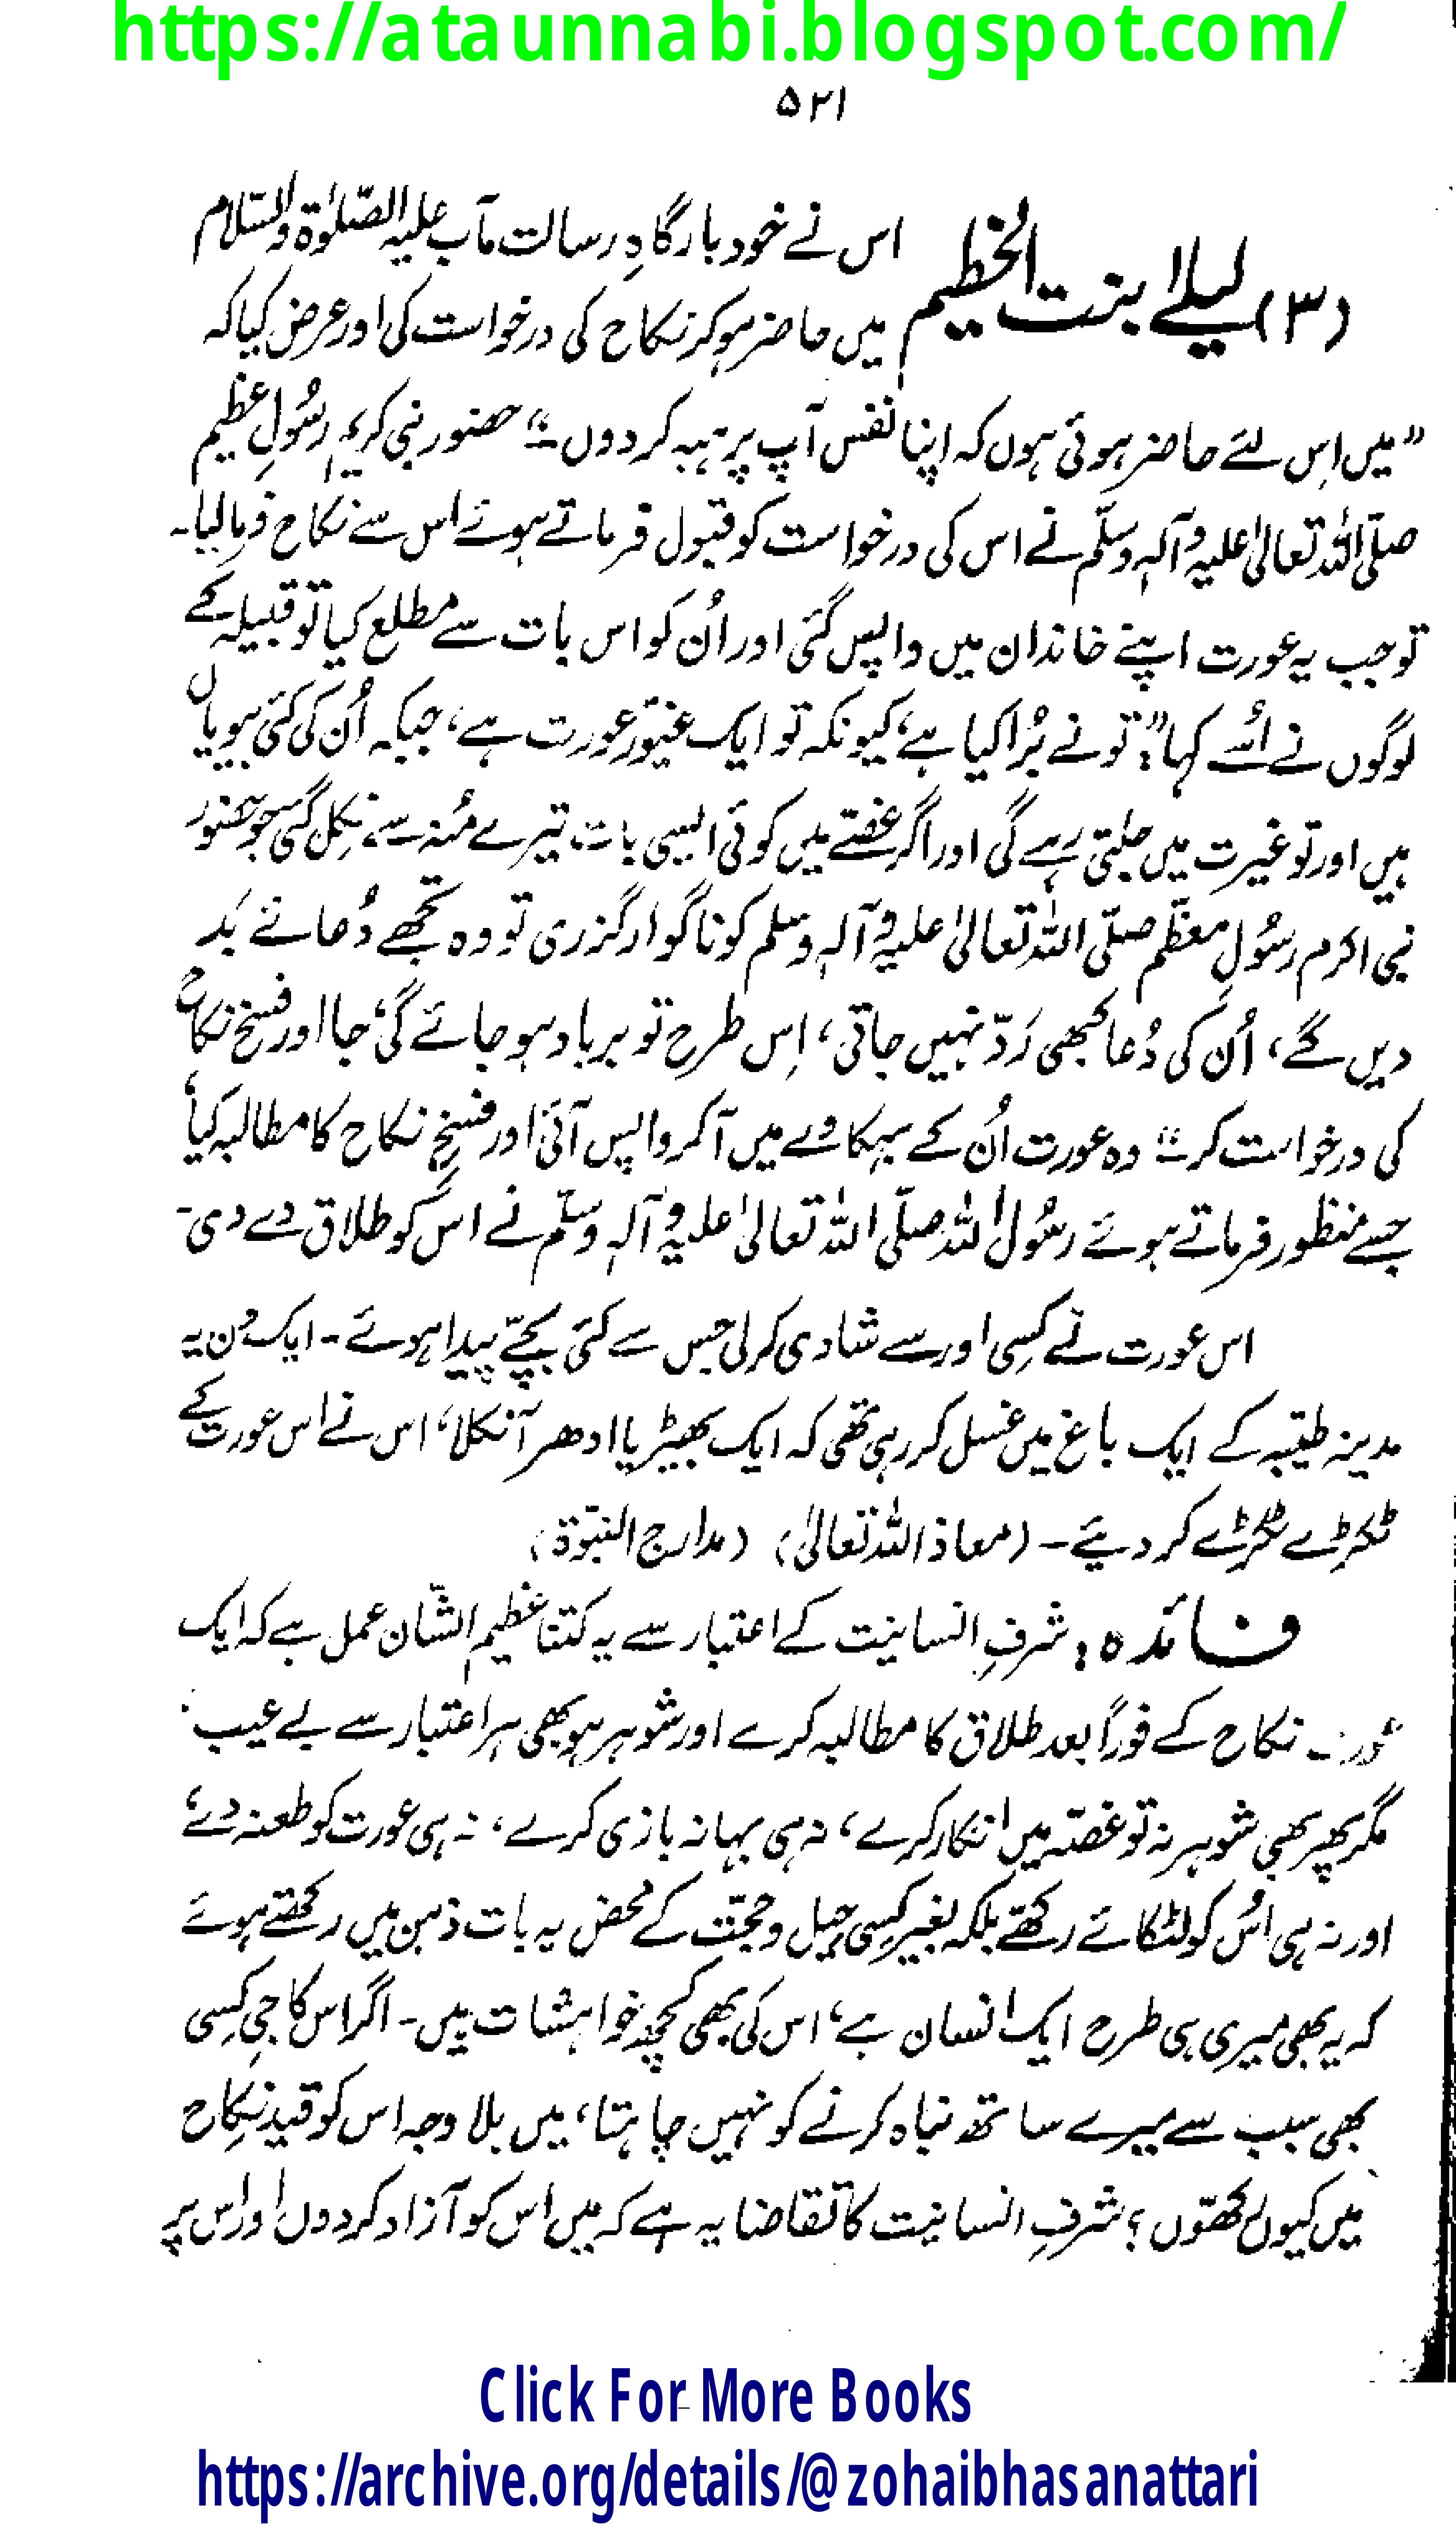 https://ataunnabi.blogspot.com/
۵۲۱
(۳) لیلےٰ بنت الخطیم
اس نے خود بارگاہِ رسالت مآب علیہ الصّلوٰۃ والسّلام
میں حاضر ہو کر نکاح کی درخواست کی اور عرض کیا کہ
”میں اِس لئے حاضر ہوئی ہوں کہ اپنا نفس آپ پر ہبہ کر دوں۔“ حضور نبی کریم رسُولِ عظیم
صلّی اللہ تعالیٰ علیہ وآلہٖ وسلّم نے اس کی درخواست کو قبول فرماتے ہوئے اس سے نکاح فرما لیا۔
تو جب یہ عورت اپنے خاندان میں واپس گئی اور اُن کو اس بات سے مطلع کیا تو قبیلہ کے
لوگوں نے اسُے کہا: ”تو نے بُرا کیا ہے، کیونکہ تو ایک غیّور عورت ہے، جبکہ اُن کی کئی بیویاں
ہیں اور تو غیرت میں جلتی رہے گی اور اگر غصّے میں کوئی ایسی بات تیرے مُنہ سے نکل گئی جو حضور
نبی اکرم رسُولِ معظّم صلّی اللہ تعالیٰ علیہ وآلہٖ وسلم کو ناگوار گزری تو وہ تجھے دُعائے بَد
دیں گے، اُن کی دُعا کبھی رَدّ نہیں جاتی، اِس طرح تو برباد ہو جائے گی، جا اور فسخِ نکاح
کی درخواست کر۔“ وہ عورت اُن کے بہکاوے میں آکر واپس آئی اور فسخِ نکاح کا مطالبہ کیا،
جسے منظور فرماتے ہوئے رسُول اللہ صلّی اللہ تعالیٰ علیہ وآلہٖ وسلّم نے اس کو طلاق دے دی۔
اس عورت نے کسِی اور سے شادی کر لی جس سے کئی بچّے پیدا ہوئے۔ ایک دن یہ
مدینہ طیّبہ کے ایک باغ میں غسل کر رہی تھی کہ ایک بھیڑیا ادھر آ نکلا، اس نے اس عورت کے
ٹکڑے ٹکڑے کر دیئے۔ (معاذ اللہ تعالیٰ) (مدارج النبوّۃ)
فائدہ: شرفِ انسانیت کے اعتبار سے یہ کتنا عظیم الشّان عمل ہے کہ ایک
عورت نکاح کے فوراً بعد طلاق کا مطالبہ کرے اور شوہر ہو بھی ہر اعتبار سے بے عیب
مگر پھر بھی شوہر نہ تو غصّہ میں انکار کرے، نہ ہی بہانہ بازی کرے، نہ ہی عورت کو طعنہ دے،
اور نہ ہی اسُ کو لٹکائے رکھے بلکہ بغیر کسِی حیل و حجّت کے محض یہ بات ذہن میں رکھتے ہوئے
کہ یہ بھی میری ہی طرح ایک انسان ہے، اس کی بھی کچھ خواہشات ہیں۔ اگر اس کا جی کسِی
بھی سبب سے میرے ساتھ نباہ کرنے کو نہیں چاہتا، میں بلا وجہ اس کو قیدِ نکاح
میں کیوں رکھّوں؟ شرفِ انسانیت کا تقاضا یہ ہے کہ میں اس کو آزاد کر دوں اور اس پر
Click For More Books
https://archive.org/details/@zohaibhasanattari